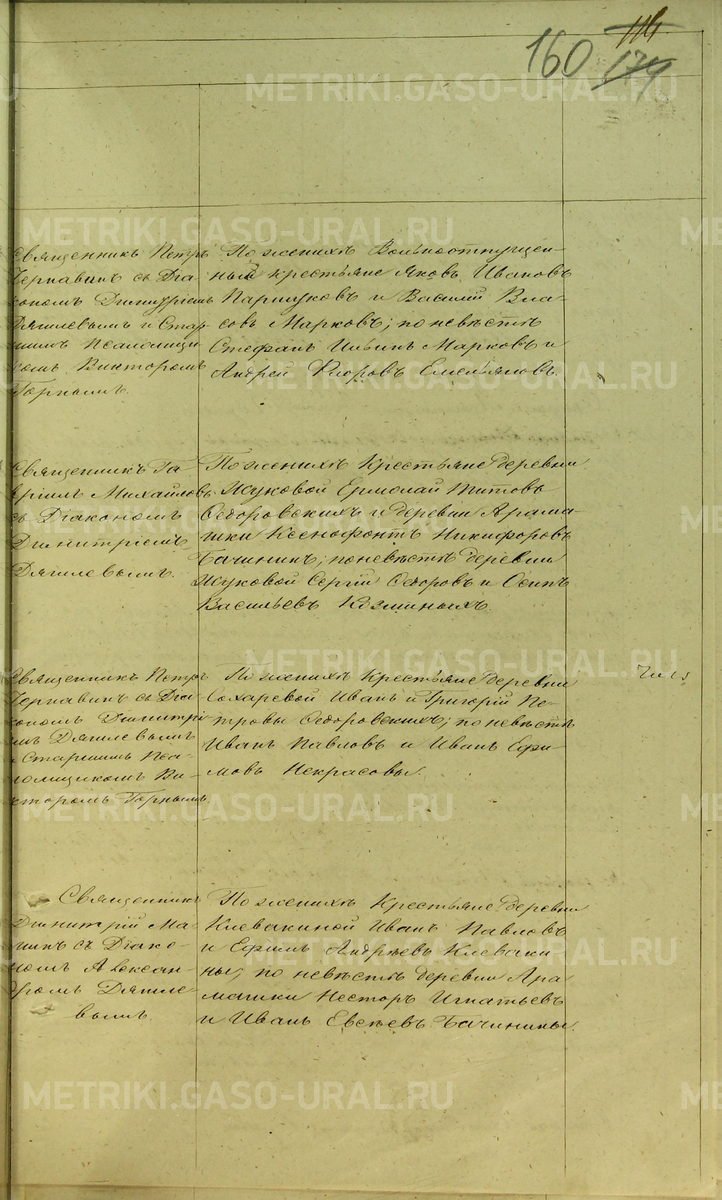 160
114
174
Священникъ Петръ
Чернавинъ съ Діа
кономъ Димитріемъ
Дягилевымъ и Стар
шимъ Псаломщи
комъ Викторомъ
Горнымъ.
По женихѣ Вольноотпущен-
ный крестьяне Яковъ Ивановъ
Паршуковъ и Василій Вла-
совъ Марковъ; по невѣстѣ
Стефанъ Ильинъ Марковъ и
Андрей Флоровъ Емельяновъ.
Священникъ Га
вріилъ Михайловъ
съ Діакономъ
Димитріемъ
Дягилевымъ.
По женихѣ Крестьяне деревни
Жуковой Ермолай Титовъ
Ѳедоровскихъ и деревни Арама-
шки Ксенофонтъ Никифоровъ
Бачининъ; по невѣстѣ деревни
Жуковой Сергій Ѳедоровъ и Осипъ
Васильевъ Козминыхъ.
Священникъ Петръ
Чернавинъ съ Діа-
кономъ Димитрі
емъ Дягилевымъ
и Старшимъ Пса-
ломщикомъ Ви-
кторомъ Горнымъ
По женихѣ Крестьяне деревни
Сохаревой Иванъ и Григорій Пе-
тровы Ѳедоровскихъ; по невѣстѣ
Иванъ Павловъ и Иванъ Ефи-
мовъ Некрасовы.
Священникъ
Димитрій Ма-
минъ съ Діако-
номъ Алексан-
дромъ Дягиле-
вымъ.
По женихѣ Крестьяне деревни
Клевакиной Иванъ Павловъ
и Ефимъ Андреевъ Клеваки
ны; по невѣстѣ деревни Ара
машки Несторъ Игнатьевъ
и Иванъ Евсѣевъ Бачинины.
METRIKI.GASO-URAL.RU